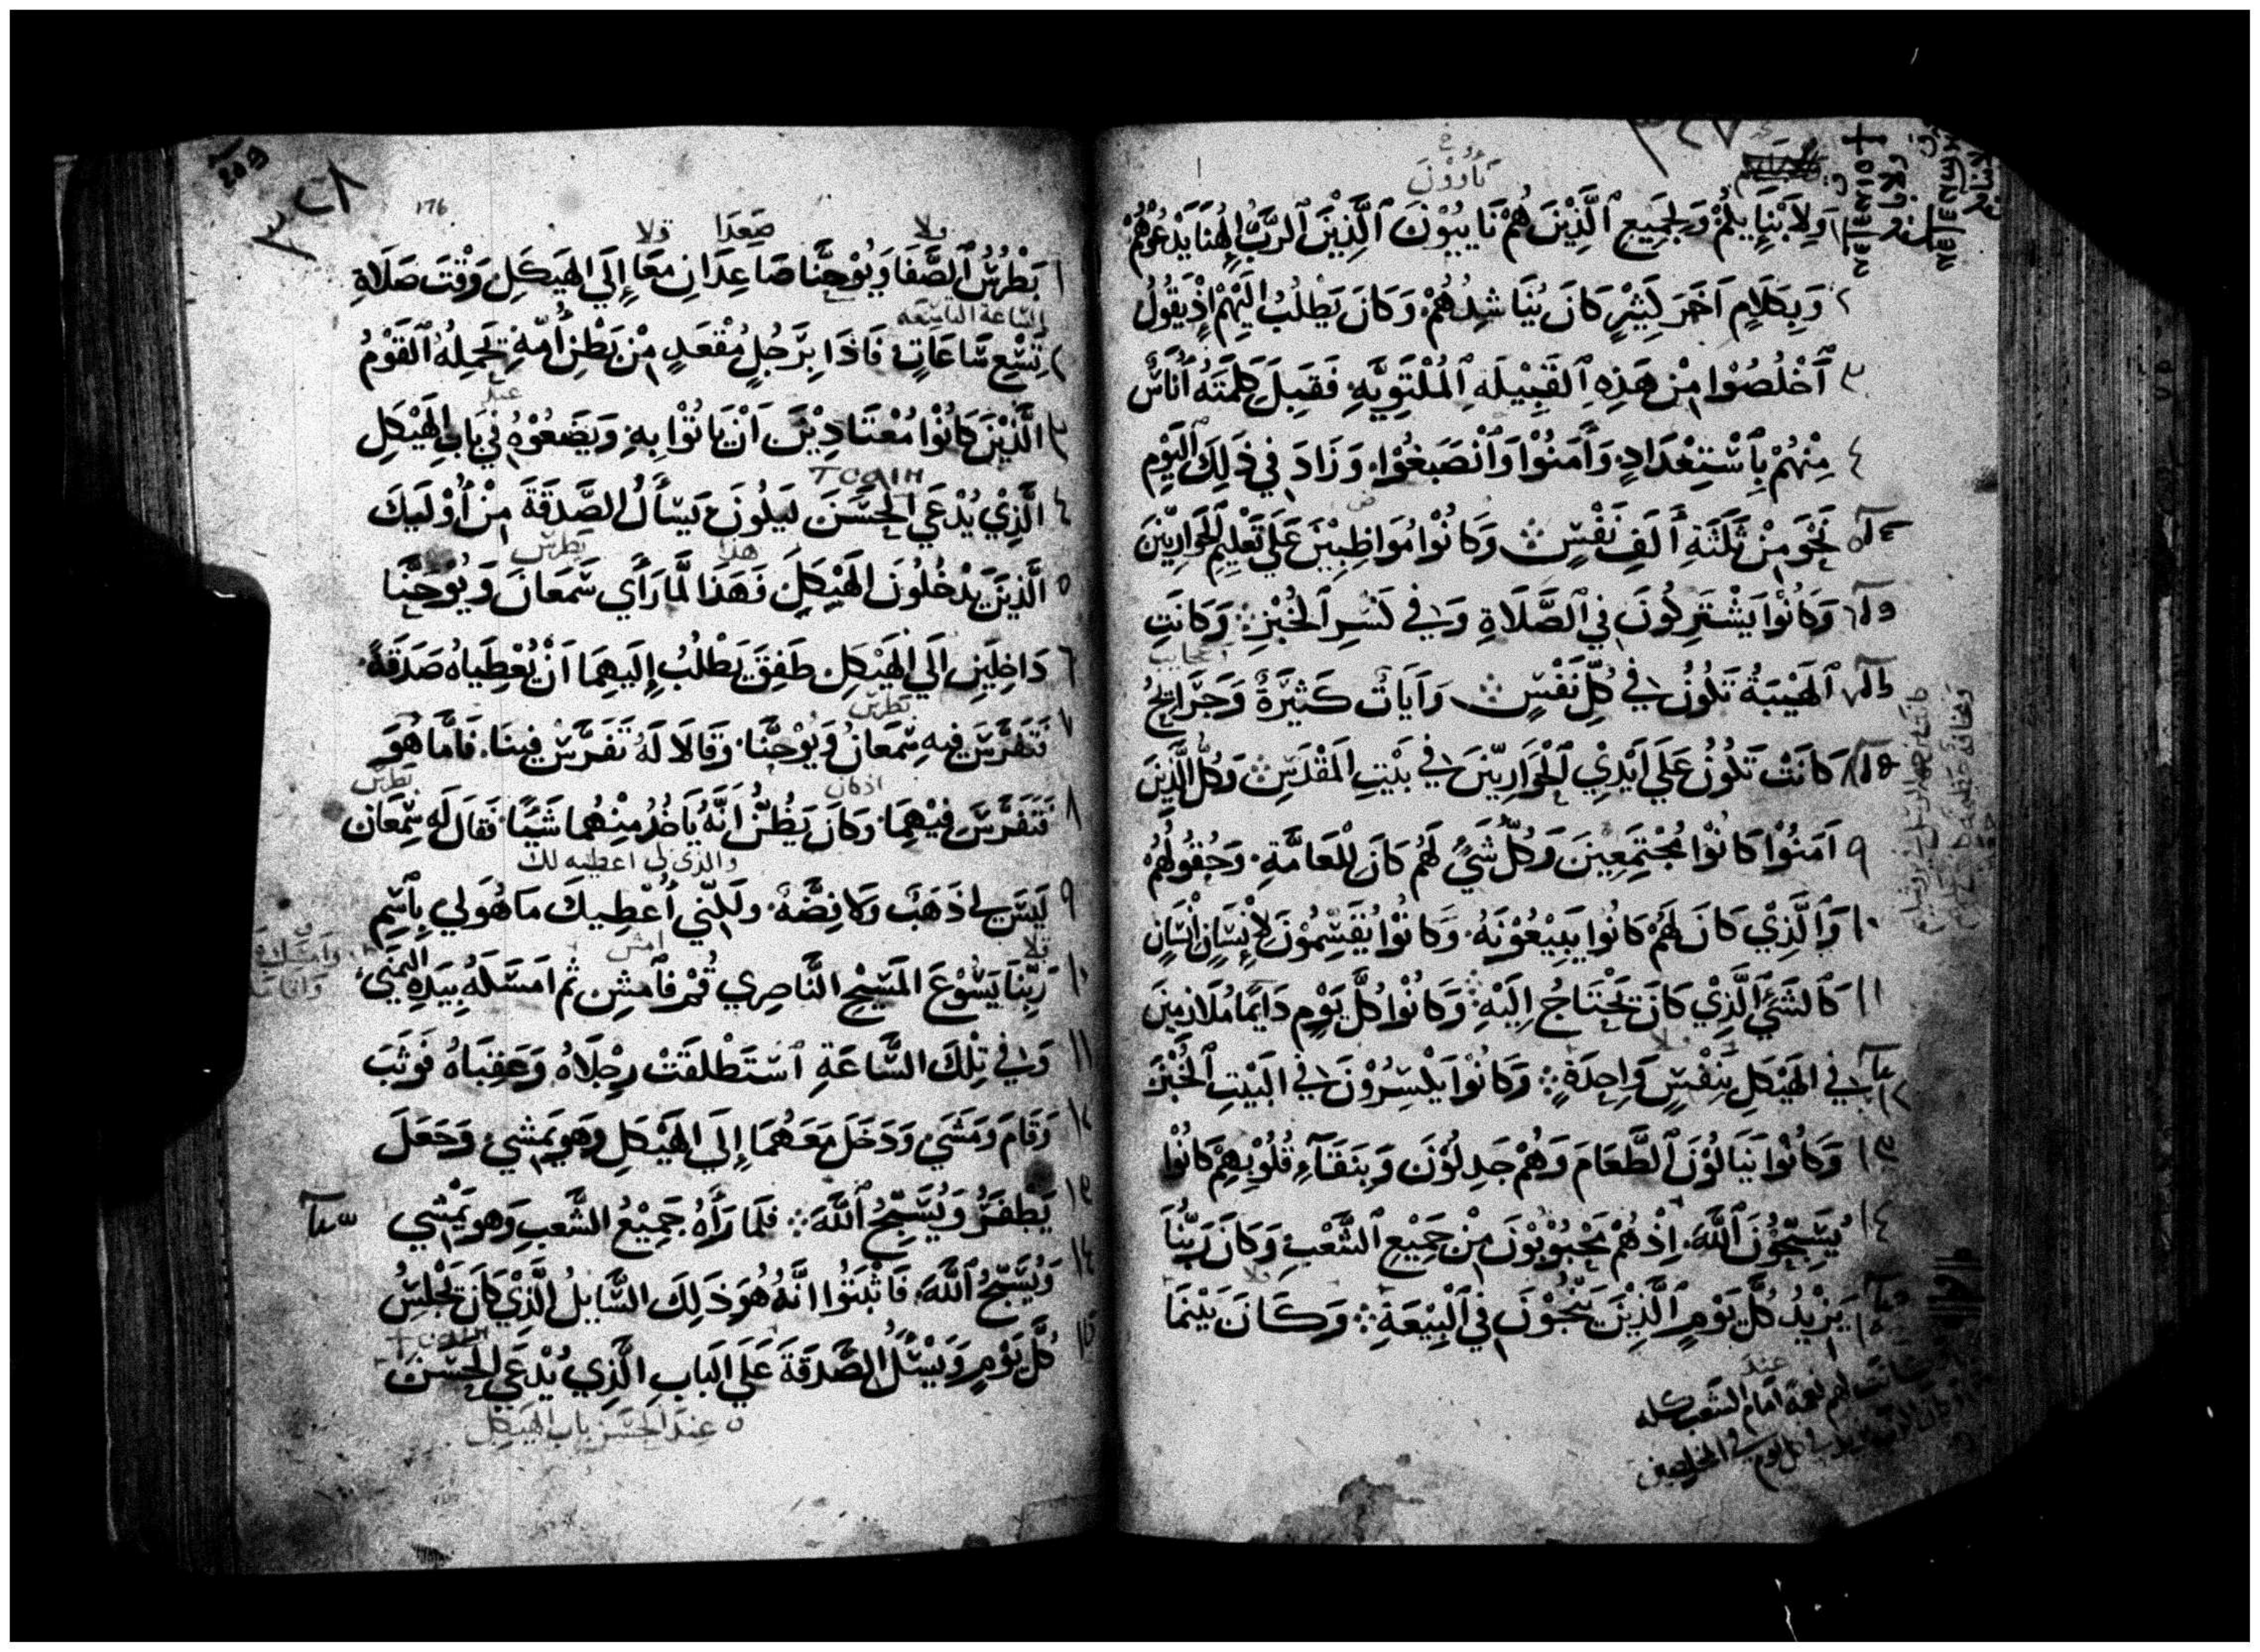 ٣٢٧
تَاؤُوْنَ
١ وَلِأَبْنَايِكُمْ وَلِجَمِيعِ ٱلَّذِيْنَ هُمْ نَايِيُوْنَ ٱلَّذِيْنَ ٱلرَّبُّ إِلٰهُنَا يَدْعُوْهُمْ
٢ وَبِكَلَامٍ آخَرَ كَثِيْرٍ كَانَ يُنَاشِدُهُمْ وَكَانَ يَطْلُبُ إِلَيْهِمْ إِذْ يَقُوْلُ
٣ ٱخْلُصُوْا مِنْ هَذِهِ ٱلقَبِيْلَةِ ٱلمُلْتَوِيَّةِ فَقَبِلَ كَلِمَتَهُ أُنَاسٌ
٤ مِنْهُمْ بِٱسْتِعْدَادٍ وَآمَنُوْا وَٱنْصَبَغُوْا وَزَادَ فِي ذَلِكَ ٱليَوْمِ
٥ نَحْوَ مِنْ ثَلَثَةِ أَلَفِ نَفْسٍ وَكَانُوْا مُوَاظِبِيْنَ عَلَى تَعْلِيْمِ ٱلحَوَارِيِّيْنَ
٦ وَكَانُوْا يَشْتَرِكُونَ فِي ٱلصَّلَاةِ وَفِي كَسْرِ ٱلخُبْزِ وَكَانَتِ
عجايب
٧ ٱلهَيْبَةُ تَكُوْنُ فِي كُلِّ نَفْسٍ وَآيَاتٌ كَثِيْرَةٌ وَجَرَايِحُ
٨ كَانَتْ تَكُوْنُ عَلَى أَيْدِيْ ٱلحَوَارِيِّيْنَ فِي بَيْتِ المَقْدَسِ وَكُلُّ الَّذِيْنَ
٩ آمَنُوْا كَانُوْا مُجْتَمِعِيْنَ وَكُلُّ شَيْءٍ لَهُمْ كَانَ لِلْعَامَّةِ وَحُقُولُهُمْ
١٠ وَٱلَّذِيْ كَانَ لَهُمْ كَانُوا يَبِيْعُوْنَهُ وَكَانُوْا يُقَسِّمُوْنَ لِإِنْسَانٍ إِنْسَانٍ
١١ كَٱلشَيْءِ ٱلَّذِيْ كَانَ يَحْتَاجُ إِلَيْهِ وَكَانُوْا كُلَّ يَوْمٍ دَايمًا مُلَازِمِيْنَ
١٢ فِي الهَيْكَلِ بِنَفْسٍ وَاحِدَةٍ وَكَانُوْا يَكْسِرُوْنَ فِي البَيْتِ ٱلخُبْزَ
١٣ وَكَانُوْا يَنَالُوْنَ ٱلطَّعَامَ وَهُمْ جَدِلُوْنَ وَبِنَقَآءِ قُلُوْبِهِمْ كَانُوْا
١٤ يُسَبِّحُوْنَ ٱللَّهَ إِذْ هُمْ مَحْبُوْبُوْنَ مِنْ جَمِيْعِ ٱلشَّعْبِ وَكَانَ رَبُّنَا
١٥ يَزِيْدُ كُلَّ يَوْمٍ ٱلَّذِيْنَ يَنْجُوْنَ فِي ٱلبِيْعَةِ وَكَانَ بَيْنَمَا
عند
لهم نعمة امام الشعب كله
٣٢٨
176
صَعَدَا
١ بَطْرُسُ ٱلصَّفَا وَيُوْحَنَّا صَاعِدَانِ مَعَا إِلَى الهَيكَلِ وَقْتَ صَلَاةِ
الساعة التاسعه
٢ تِسْعِ سَاعَاتٍ فَاذَا بِرَجُلٍ مُقْعَدٍ مِنْ بَطْنِ أُمِّهِ تَحمِلُهُ ٱلقَوْمُ
عند
٣ الَّذِيْنَ كَانُوْا مُعْتَادِيْنَ أَنْ يَاتُوْا بِهِ وَيَضَعُوْهُ فِي بَابِ الهَيْكَلِ
ТСАІН
٤ الَّذِيْ يُدْعَي الحَسَنَ لَيَكُونَ يَسْأَلُ الصَّدَقَةَ مِنْ أُوْلَيِكَ
هذا بطرس
٥ الَّذِيْنَ يَدْخُلُونَ الهَيْكَلَ فَهَذَا لَمَّا رَأَي سَمعَانَ وَيُوْحَنَّا
٦ دَاخِلَيْنِ الَي الهَيْكَلِ طَفِقَ يَطْلُبُ إِلَيهِمَا أَنْ يُعْطِيَاهُ صَدَقَةً
بطرس
٧ فَتَفَرَّسَ فِيهِ سِمعَانُ وَيُوْحَنَّا وَقَالَا لَهُ تَفَرَّسْ فِينَا فَامَّا هُوَ
اذ كان بطرس
٨ فَتَفَرَّسَ فِيْهِمَا وَكَانَ يَظُنُّ أَنَّهُ يَاخُذُ مِنْهُما شَيًا فَقَالَ لَه سِمعَان
والذى لى اعطيه لك
٩ لَيسَ لِي ذَهَبٌ وَلَا فِضَّةٌ وَلَكِنِّي أُعْطِيكَ مَا هُوَ لِي بِٱسْمِ
امش
١٠ رَبِّنَا يَسُوْعَ المَسِيحِ النَّاصِرِي قُمْ فَٱمشِ ثُمَّ امَسَكَهُ بِيَدِهِ اليُمْنَي
١١ وَفِي تِلْكَ السَّاعَةِ ٱسْتَطْلَقَتْ رِجْلَاهُ وَعَقِبَاهُ فَوَثَبَ
١٢ وَقَامَ وَمَشَي وَدَخَلَ مَعَهُمَا إِلَي الهَيْكَلِ وَهو يَمشِي وَجَعَلَ
١٣ يَطْفَرُ وَيُسَبِّحُ ٱللَّهَ فَلَمَا رَأَهُ جَمِيْعُ الشَّعبِ وَهو يَمْشِي
١٤ وَيُسَبِّحُ ٱللَّهَ فَاثْبَتُوا انَّهُ هُوَ ذَلِكَ السَّايلُ الَّذِيْ كَانَ يَجْلِسُ
١٥ كُلَّ يَوْمٍ وَيَسْئَلُ الصَّدَقَةَ عَلَي البَابِ الَّذِي يُدْعَي الحَسَنَ
عِندَ الحَسَن باب الهَيكل